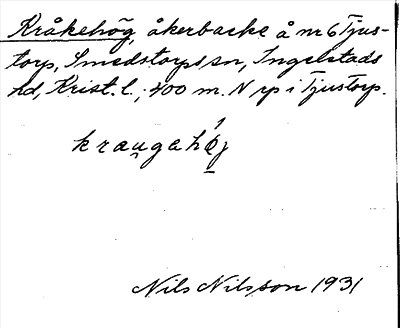 Kråkehög, åkerbacke å nr 6 Tjus-
torp, Smedstorps sn, Ingelstads
hd, Krist. l.; 400 m. N rp i Tjustorp.
kraugahǿj
Nils Nilsson 1931